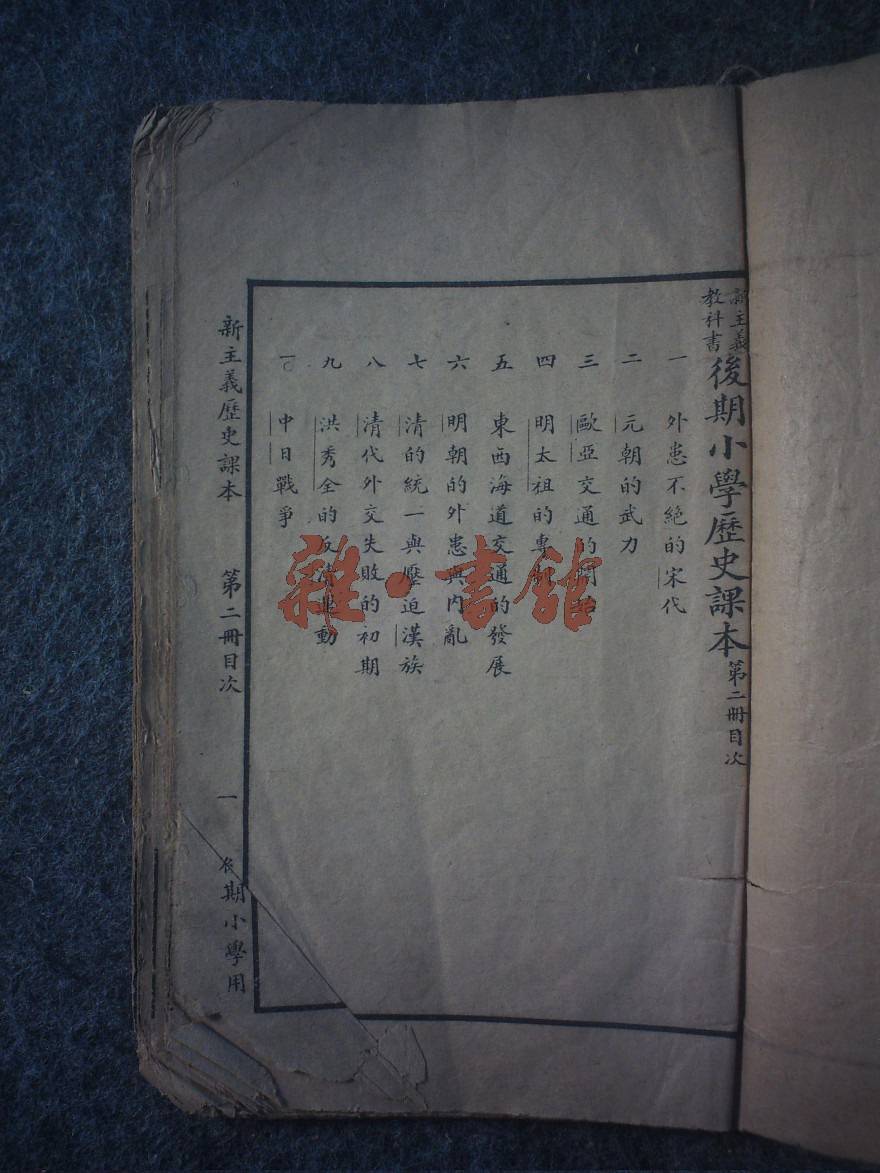 新主義教科書 後期小學歷史課本 第二冊目次
一 外患不絕的宋代
二 元朝的武力
三 歐亞交通的開始
四 明太祖的專制
五 東西海道交通的發展
六 明朝的外患與內亂
七 清的統一與壓迫漢族
八 清代外交失敗的初期
九 洪秀全的反清運動
一〇 中日戰爭
新主義歷史課本 第二冊目次 一 後期小學用
雜·書館